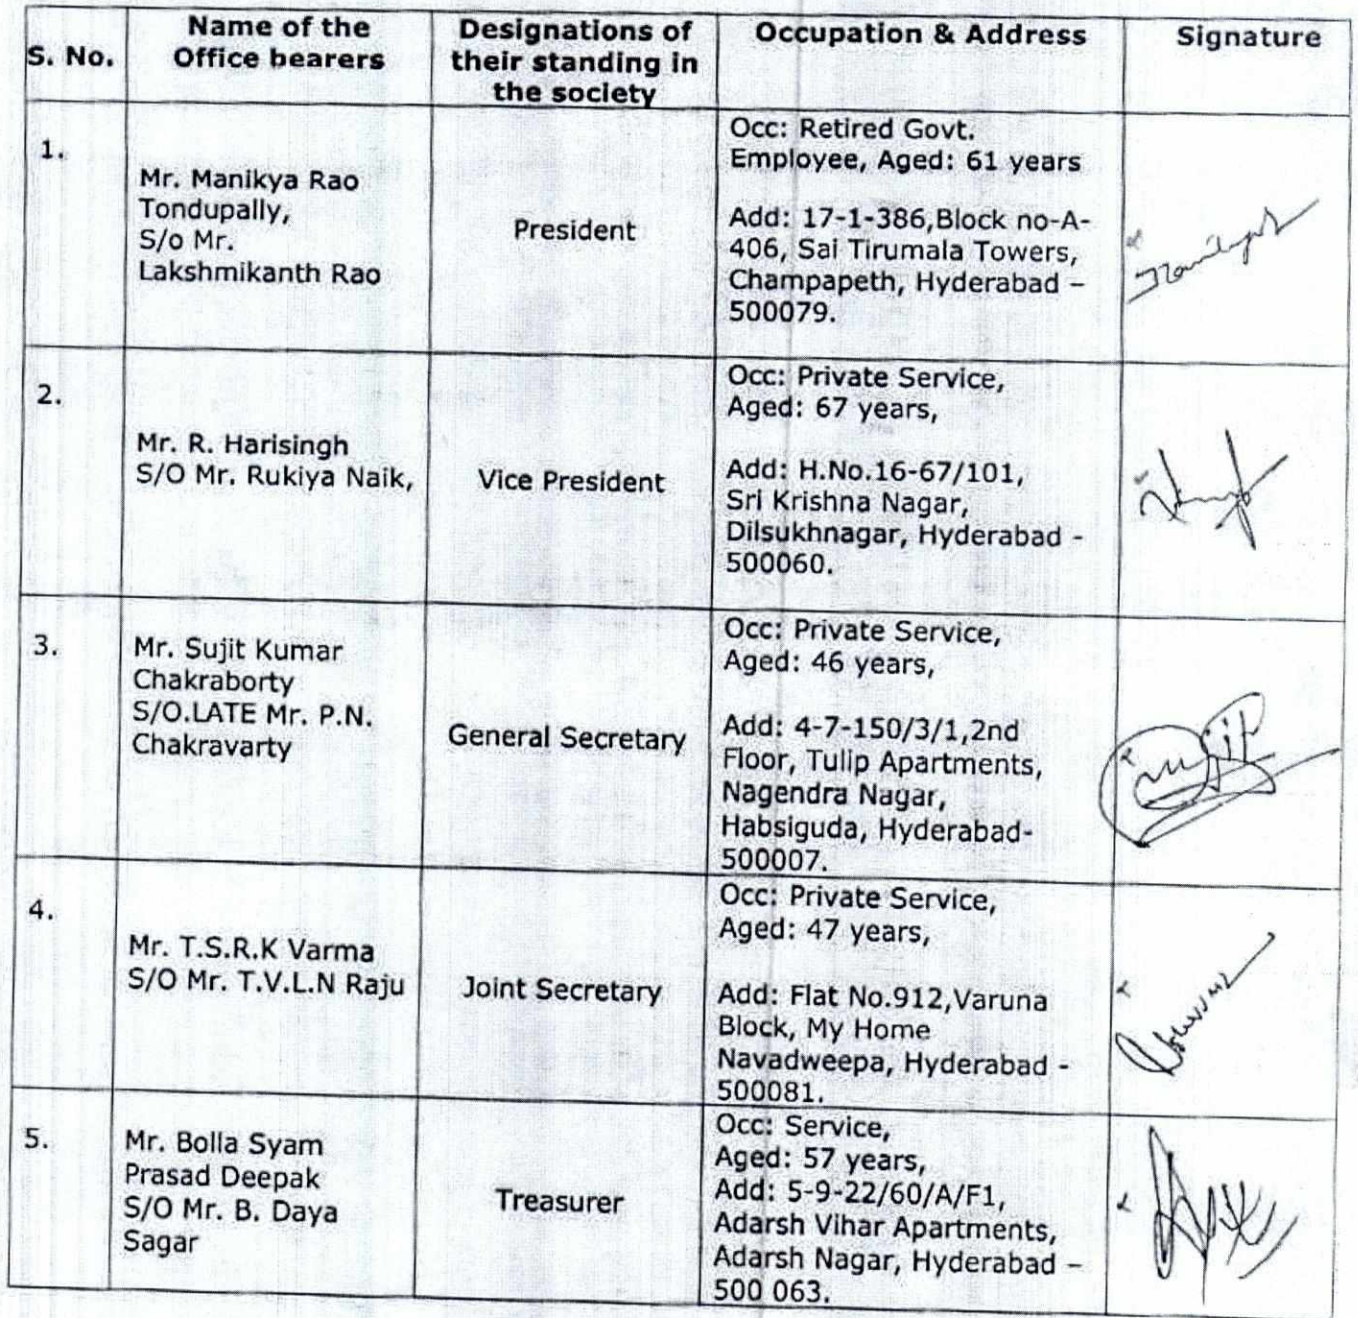 S. No.
Name of the
Office bearers
Designations of
their standing in
the society
Occupation & Address
Signature
1.
Mr. Manikya Rao
Tondupally,
S/o Mr.
Lakshmikanth Rao
President
Occ: Retired Govt.
Employee, Aged: 61 years
Add: 17-1-386,Block no-A-
406, Sai Tirumala Towers,
Champapeth, Hyderabad –
500079.
2.
Mr. R. Harisingh
S/O Mr. Rukiya Naik,
Vice President
Occ: Private Service,
Aged: 67 years,
Add: H.No.16-67/101,
Sri Krishna Nagar,
Dilsukhnagar, Hyderabad -
500060.
3.
Mr. Sujit Kumar
Chakraborty
S/O.LATE Mr. P.N.
Chakravarty
General Secretary
Occ: Private Service,
Aged: 46 years,
Add: 4-7-150/3/1,2nd
Floor, Tulip Apartments,
Nagendra Nagar,
Habsiguda, Hyderabad-
500007.
4.
Mr. T.S.R.K Varma
S/O Mr. T.V.L.N Raju
Joint Secretary
Occ: Private Service,
Aged: 47 years,
Add: Flat No.912,Varuna
Block, My Home
Navadweepa, Hyderabad -
500081.
5.
Mr. Bolla Syam
Prasad Deepak
S/O Mr. B. Daya
Sagar
Treasurer
Occ: Service,
Aged: 57 years,
Add: 5-9-22/60/A/F1,
Adarsh Vihar Apartments,
Adarsh Nagar, Hyderabad –
500 063.